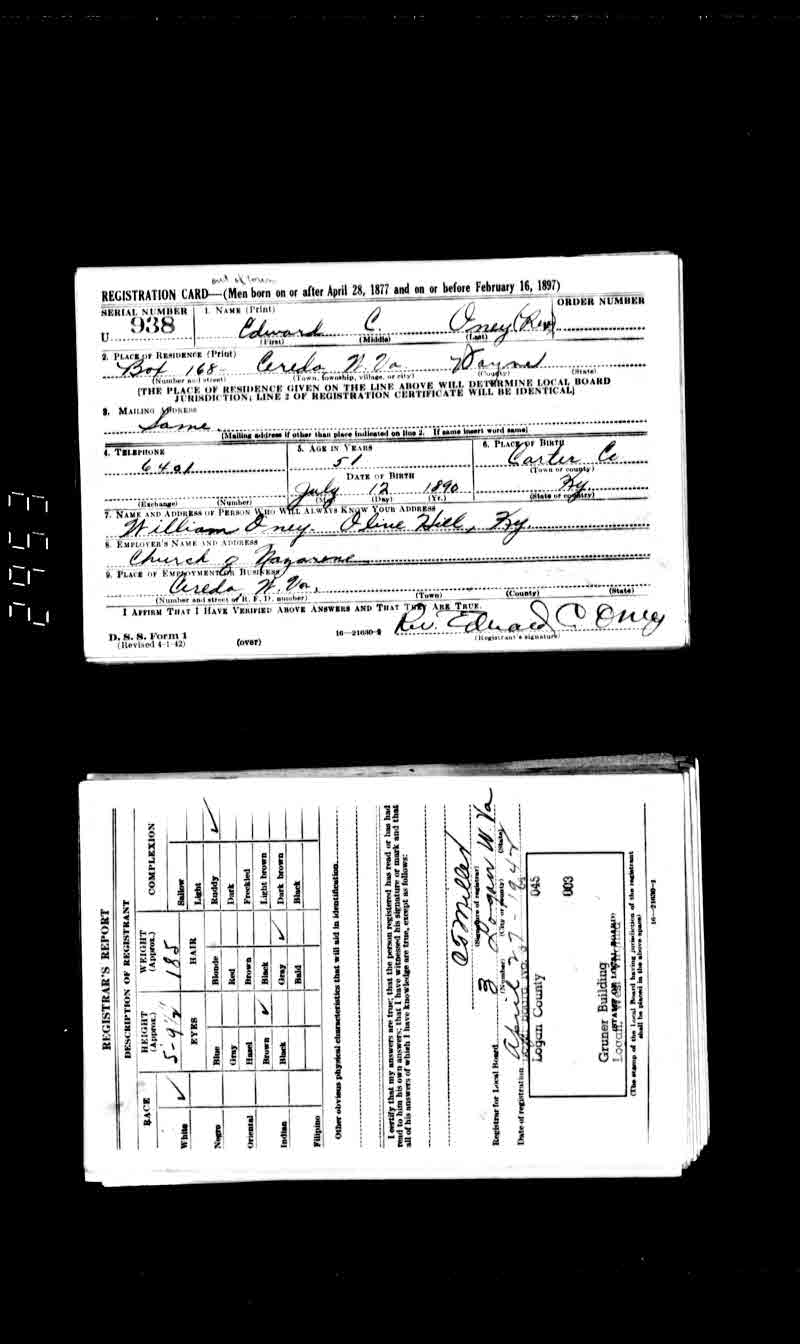 out of town
REGISTRATION CARD—(Men born on or after April 28, 1877 and on or before February 16, 1897)
SERIAL NUMBER 1. NAME (Print) ORDER NUMBER
U 938 Edward C. Oney (Rev)
(First) (Middle) (Last)
2. PLACE OF RESIDENCE (Print)
Box 168 Ceredo W. Va Wayne
(Number and street) (Town, township, village, or city) (County) (State)
[THE PLACE OF RESIDENCE GIVEN ON THE LINE ABOVE WILL DETERMINE LOCAL BOARD
JURISDICTION; LINE 2 OF REGISTRATION CERTIFICATE WILL BE IDENTICAL]
3. MAILING ADDRESS
Same
[Mailing address if other than place indicated on line 2. If same insert word same]
4. TELEPHONE 5. AGE IN YEARS 6. PLACE OF BIRTH
6401 51 Carter Co
(Town or county)
DATE OF BIRTH
July 12 1890 Ky.
(Exchange) (Number) (Mo.) (Day) (Yr.) (State or country)
7. NAME AND ADDRESS OF PERSON WHO WILL ALWAYS KNOW YOUR ADDRESS
William Oney. Olive Hill, Ky.
8. EMPLOYER'S NAME AND ADDRESS
Church of Nazarene
9. PLACE OF EMPLOYMENT OR BUSINESS
Ceredo W. Va.
(Number and street or R. F. D. number) (Town) (County) (State)
I AFFIRM THAT I HAVE VERIFIED ABOVE ANSWERS AND THAT THEY ARE TRUE.
Rev. Edward C Oney
D. S. S. Form 1
(Revised 4-1-42) (over) 16—21630-2 (Registrant's signature)
2953
REGISTRAR'S REPORT
DESCRIPTION OF REGISTRANT
RACE HEIGHT (Approx.) WEIGHT (Approx.) COMPLEXION
5-9½ 185
EYES HAIR
White ✓ Sallow
Light
Negro Blue Blonde Ruddy ✓
Gray Red Dark
Oriental Hazel Brown Freckled
Brown ✓ Black Light brown
Indian Black Gray ✓ Dark brown
Bald Black
Filipino
Other obvious physical characteristics that will aid in identification
I certify that my answers are true; that the person registered has read or has had
read to him his own answers; that I have witnessed his signature or mark and that
all of his answers of which I have knowledge are true, except as follows:
(Signature of registrar)
Registrar for Local Board 3 Logan W Va
(Number) (City or county) (State)
Date of registration April 27-1942
Logan County 045
003
Gruner Building
(STAMP OF LOCAL BOARD)
(The stamp of the Local Board having jurisdiction of the registrant
shall be placed in the above space)
16—21630-1